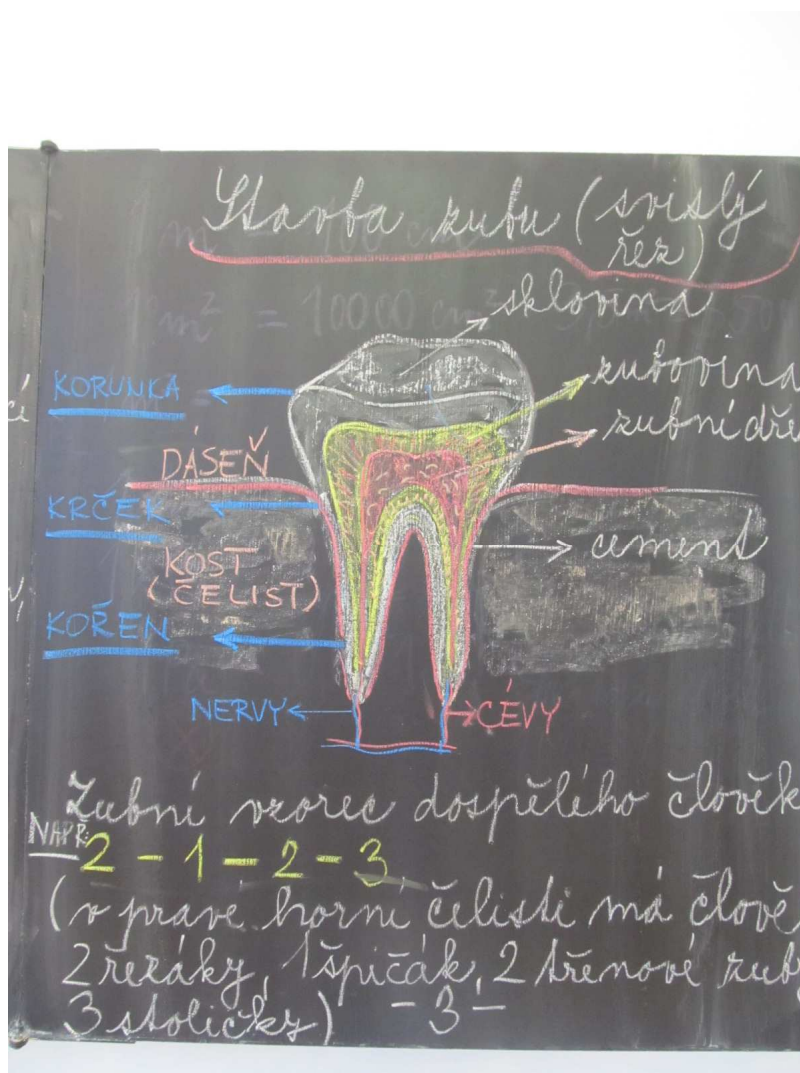 Stavba zubu (svislý
řez)
m² = 10000 cm²
sklovina
KORUNKA
zubovina
zubní dře
DÁSEŇ
KRČEK
cement
KOST
(ČELIST)
KOŘEN
NERVY
CÉVY
Zubní vzorec dospělého člověk
NAPŘ:
2 - 1 - 2 - 3
(v pravé horní čelisti má člově
2 řezáky, 1 špičák, 2 třenové zuby
3 stoličky) - 3 -